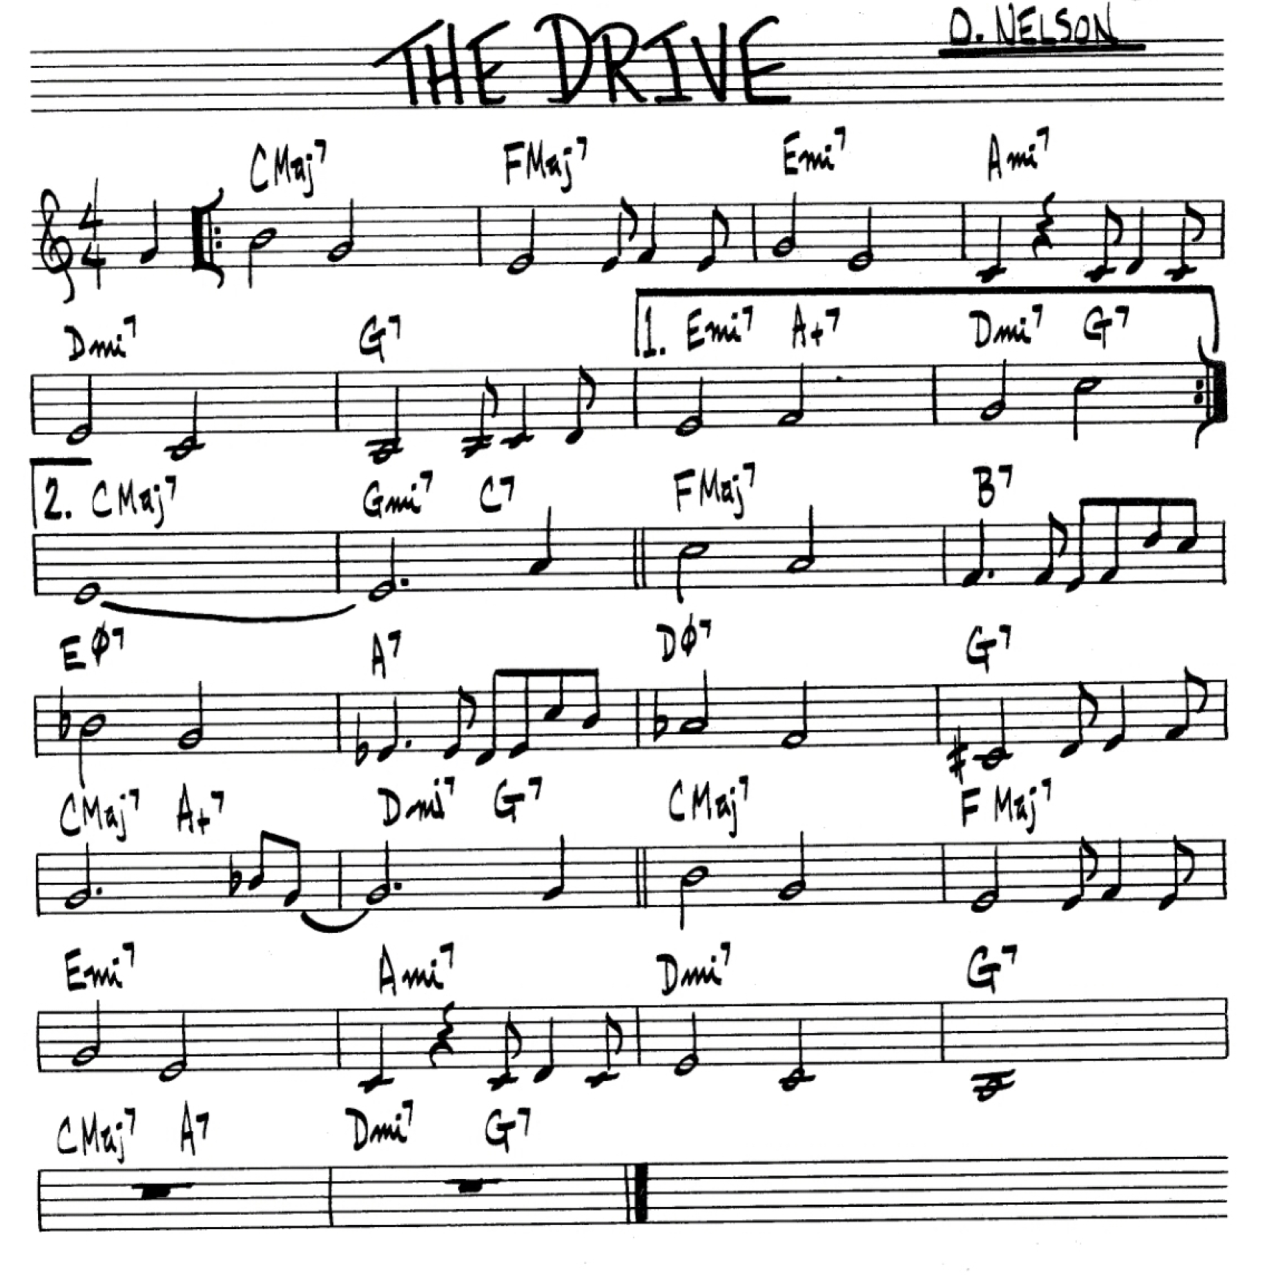 THE DRIVE O. NELSON
CMaj7 FMaj7 Emi7 Ami7
4
4
1. Emi7 A+7 Dmi7 G7
Dmi7 G7
2. CMaj7 Gmi7 C7 FMaj7 B7
EØ7 A7 DØ7 G7
CMaj7 A+7 Dmi7 G7 CMaj7 FMaj7
Emi7 Ami7 Dmi7 G7
CMaj7 A7 Dmi7 G7